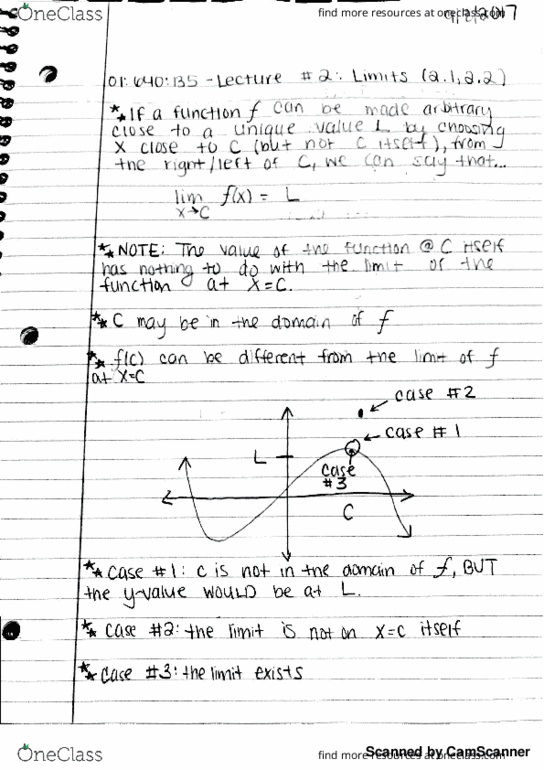 OneClass
find more resources at oneclass.com
2017
01:640:135 - Lecture #2: Limits (2.1, 2.2)
If a function f can be made arbitrary
close to a unique value L by choosing
x close to C (but not C itself), from
the right/left of C, we can say that...
lim f(x) = L
x→C
NOTE: The value of the function @ C itself
has nothing to do with the limit of the
function at x=C.
C may be in the domain of f
f(c) can be different from the limit of f
at x=C
case #2
case #1
L
case
#3
C
case #1: c is not in the domain of f, BUT
the y-value WOULD be at L.
case #2: the limit is not on x=c itself
case #3: the limit exists
Scanned by CamScanner
OneClass
find more resources at oneclass.com